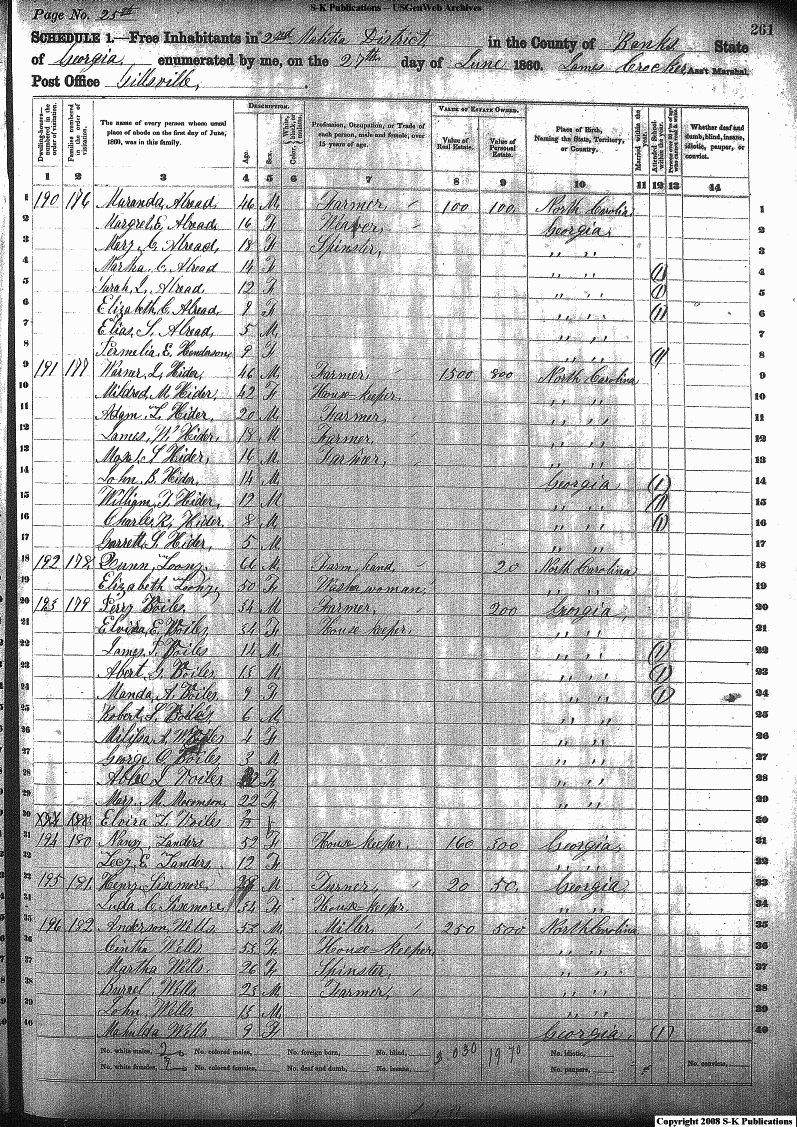 S-K Publications – USGenWeb Archives
Page No. 25th
261
SCHEDULE 1.—Free Inhabitants in 2nd Malitia District in the County of Banks State
of Georgia enumerated by me, on the 27th day of June 1860. James Crocker Ass't Marshal.
Post Office Gillsville,
DESCRIPTION. VALUE OF ESTATE OWNED.
Dwelling-houses—numbered in the order of visitation. Families numbered in the order of visitation. The name of every person whose usual place of abode on the first day of June, 1860, was in this family. Age. Sex. Color Profession, Occupation, or Trade of each person, male and female, over 15 years of age. Value of Real Estate. Value of Personal Estate. Place of Birth, Naming the State, Territory, or Country. Married within the year. Attended School within the year. Whether deaf and dumb, blind, insane, idiotic, pauper, or convict.
1 2 3 4 5 6 7 8 9 10 11 12 13 14
1 190 176 Maranda Alread 46 M Farmer 100 100 North Carolina 1
2 Margret E, Alread 16 F Weaver Georgia 2
3 Mary C Alread 18 F Spinster, " " 3
4 Martha C Alread 14 F " " (1) 4
5 Sarah L, Alread 12 F " " (1) 5
6 Elizabeth C, Alread 9 F " " (1) 6
7 Elias, S, Alread 5 M " " 7
8 Permelia, E, Henderson 9 F " " (1) 8
9 191 177 Warner, L, Hider, 46 M Farmer, 1500 800 North Carolina 9
10 Mildred, M Hider, 42 F House keeper, " " 10
11 Adam, L, Hider 20 M Farmer, " " 11
12 James, W Hider, 18 M Farmer, " " 12
13 S Hider, 16 M Farmer, " " 13
14 John B, Hider, 14 M Georgia (1) 14
15 William, J, Hider, 12 M " " (1) 15
16 Charles R, Hider, 8 M " " (1) 16
17 Garrett G Hider, 5 M " " 17
18 192 178 Loony, M Farm hand 20 North Carolina 18
19 Elizabeth Loony 50 F Washer woman, " " 19
20 193 179 Perry Boiles 34 M Farmer, 200 Georgia 20
21 Elvira, E, Boiles 34 F House keeper, " " 21
22 James, F, Boiles 14 M " " (1) 22
23 Abert G, Boiles M " " (1) 23
24 Manda, A, Boiles 9 F " " (1) 24
25 Robert, S, Boiles 6 M " " 25
26 Boiles 4 F " " 26
27 George C, Boiles 3 M " " 27
28 Boiles F " " 28
29 Mary, M, 22 F " " 29
30 Elvira L, Boiles 30
31 194 180 Nancy Landers 52 F House keeper, 160 500 Georgia, 31
32 E, Landers 12 F " " 32
33 195 181 Henry Sisemore M 20 50 Georgia 33
34 C Sisemore 34 F House keeper " " 34
35 196 182 Anderson Wells 53 M Miller 250 500 North Carolina 35
36 Wells 53 F House keeper, " " 36
37 Martha Wells 26 F Spinster, " " 37
38 Burrel Wells M Farmer, " " 38
39 John Wells M " " 39
40 Mahulda Wells 9 F Georgia (1) 40
No. white males, No. colored males, No. foreign born, No. blind, 1970 No. idiotic,
No. white females, No. colored females, No. deaf and dumb, No. insane, No. paupers, No. convicts,
Copyright 2008 S-K Publications